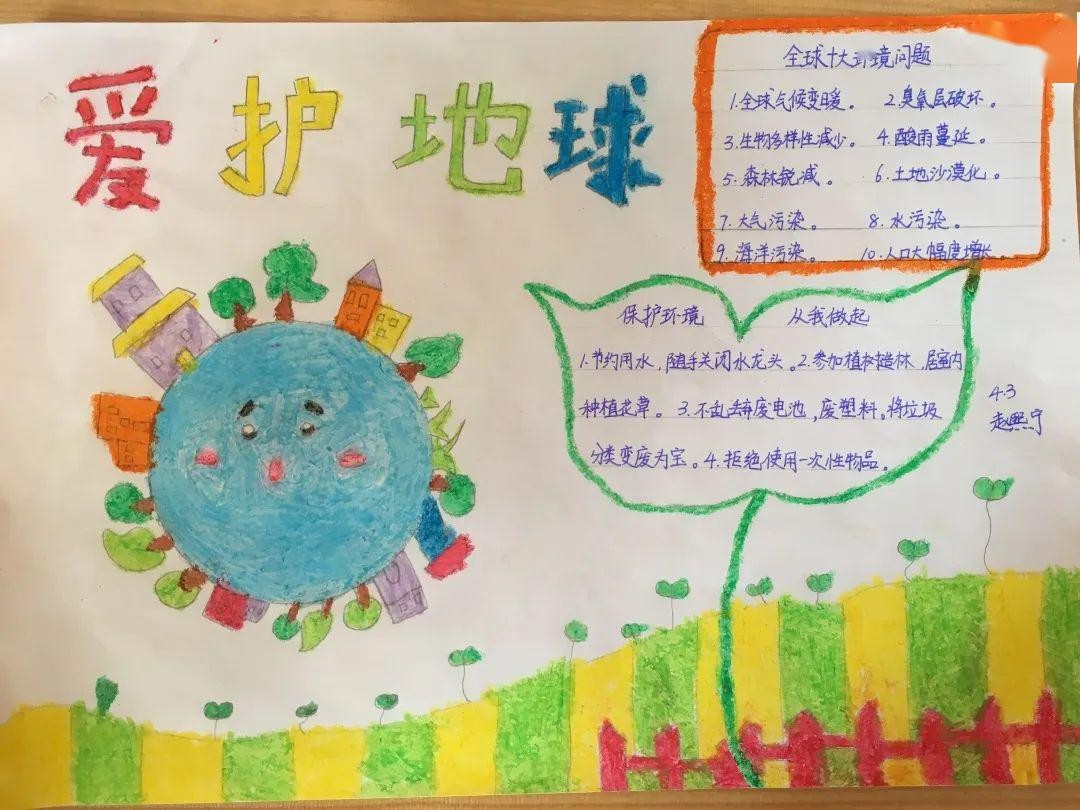 爱护地球
全球十大环境问题
1.全球气候变暖。 2.臭氧层破坏。
3.生物多样性减少。 4.酸雨蔓延。
5.森林锐减。 6.土地沙漠化。
7.大气污染。 8.水污染。
9.海洋污染。 10.人口大幅度增长。
保护环境 从我做起
1.节约用水,随手关闭水龙头。2.参加植树造林,居室内
种植花草。3.不乱丢弃废电池,废塑料。将垃圾
分类变废为宝。4.拒绝使用一次性物品。
4.3
赵熙宁